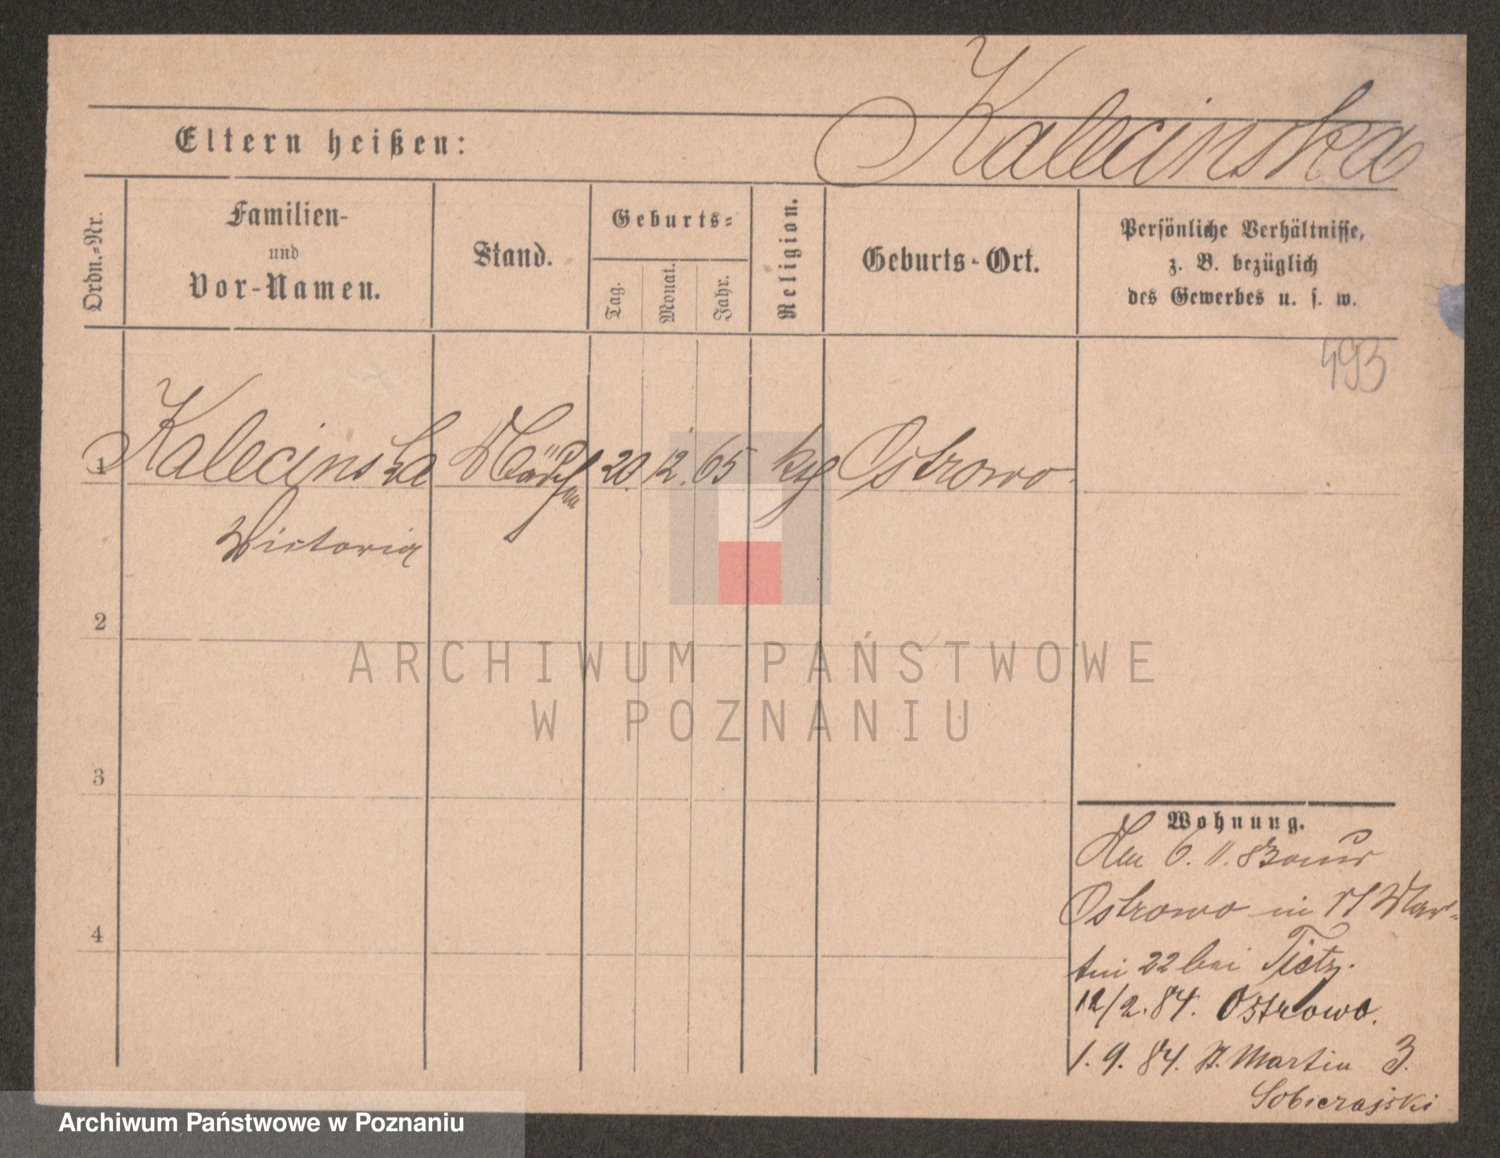 Kalecinska
Eltern heißen:
Ordn.-Nr.
Familien-
und
Vor-Namen.
Stand.
Geburts-
Tag.
Monat.
Jahr.
Religion.
Geburts-Ort.
Persönliche Verhältnisse,
z. B. bezüglich
des Gewerbes u. s. w.
493
1 Kalecinska 20. 12. 65 Ostrowo
Victoria
2
3
4
Wohnung.
Den 6. 11.
Ostrowo in St Mar-
tin 22 bei Tietz.
12/2. 84. Ostrowo.
1. 9. 84. St. Martin 3.
Sobierajski
ARCHIWUM PAŃSTWOWE
W POZNANIU
Archiwum Państwowe w Poznaniu